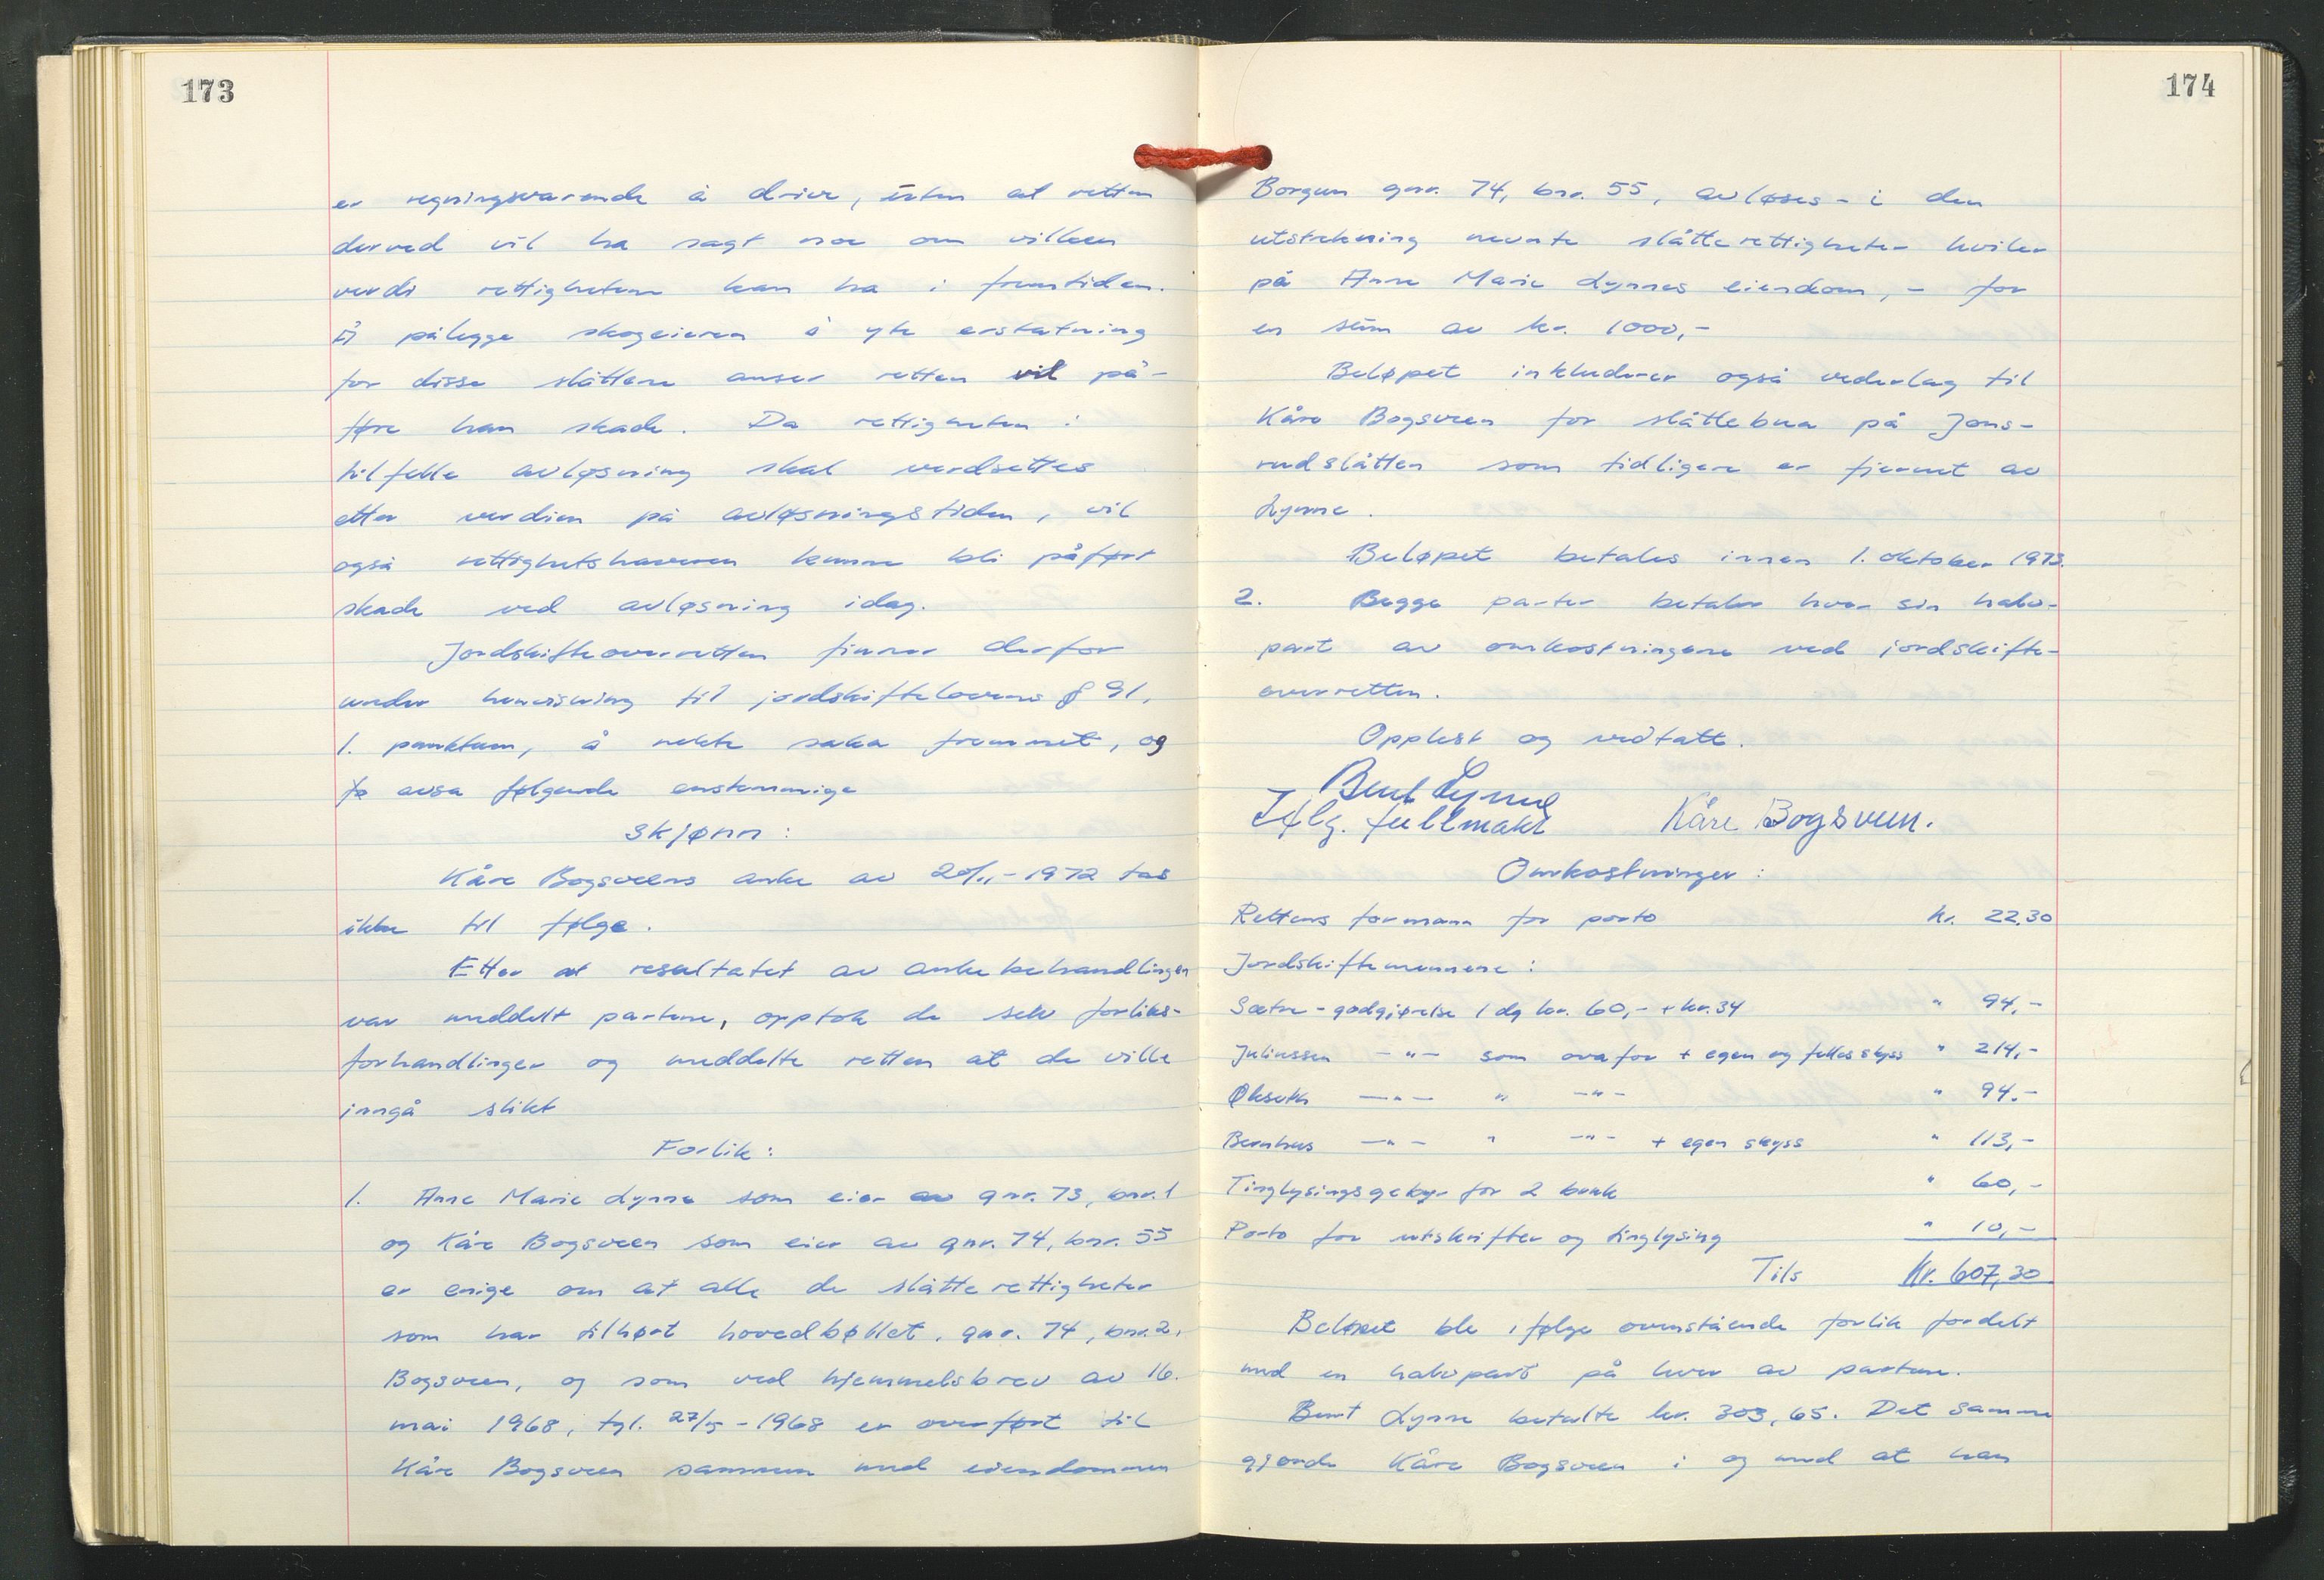 173
er regningsvarende å drive, uten at retten
derved vil ha sagt noe om vilken
verdi rettighetene kan ha i fremtiden.
Å pålegge skogeieren å yte erstatning
for disse slåttene anser retten vil på-
føre han skade. Da rettigheten i
tilfelle avløsning skal verdsettes
etter verdien på avløsningstiden, vil
også rettighetshaveren kunne bli påført
skade ved avløsning idag.
Jordskifteoverretten finner derfor
under henvisning til jordskiftelovens § 91,
1. punktum, å nekte saka fremmet, og
avsa følgende enstemmige
skjønn:
Kåre Bogsveens anke av 20/11-1972 tas
ikke til følge.
Etter at resultatet av ankebehandlingen
var meddelt partene, opptok de selv forliks-
forhandlinger og meddelte retten at de ville
inngå slikt
Forlik:
1. Anne Marie Lynne som eier av gnr. 73, bnr. 1
og Kåre Bogsveen som eier av gnr. 74, bnr. 55
er enige om at alle de slåtterettigheter
som har tilhørt hovedbøllet, gnr. 74, bnr. 2,
Bogsveen, og som ved hjemmelsbrev av 16.
mai 1968, tgl. 27/5-1968 er overført til
Kåre Bogsveen sammen med eiendommen
174
Borgun gnr. 74, bnr. 55, avløses - i den
utstrekning nevnte slåtterettigheter hviler
på Anne Marie Lynnes eiendom, - for
en sum av kr. 1000,-
Beløpet inkluderer også vederlag til
Kåre Bogsveen for slåttebua på Jøns-
rudslåtten som tidligere er fjernet av
Lynne.
Beløpet betales innen 1. oktober 1973.
2. Begge parter betaler hver sin halv-
part av omkostningene ved jordskifte-
overretten.
Opplest og vedtatt.
Bent Lynne
Iflg. fullmakt Kåre Bogsveen.
Omkostninger:
Rettens formann for porto kr. 22,30
Jordskiftemennene:
Sætre - godgjørelse 1 dg kr. 60,- + kr. 34 " 94,-
Juliussen -"- som ovafor + egen og felles skyss " 214,-
Økseth -"- " -"- " 94,-
Bernhus -"- " -"- + egen skyss " 113,-
Tinglysingsgebyr for 2 bruk " 60,-
Porto for utskrifter og tinglysing " 10,-
Tils kr. 607,30
Beløpet ble ifølge ovenstående forlik fordelt
med en halvpart på hver av partene.
Bent Lynne betalte kr. 303,65. Det samme
gjorde Kåre Bogsveen i og med at han